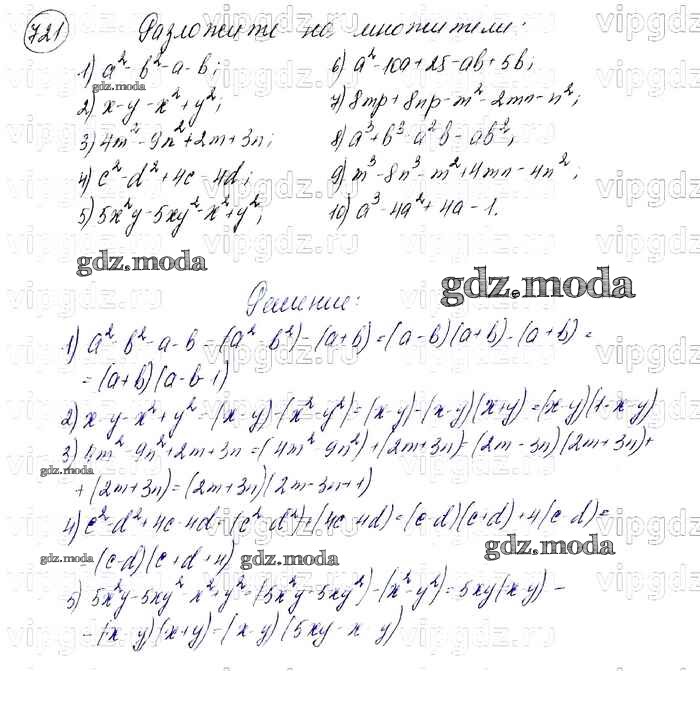 721 Разложите на множители:
1) a² - b² - a - b;
2) x - y - x² + y²;
3) 4m² - 9n² + 2m + 3n;
4) c² - d² + 4c - 4d;
5) 5x²y - 5xy² - x² + y²;
6) a² - 10a + 25 - ab + 5b;
7) 8mp + 8np - m² - 2mn - n²;
8) a³ + b³ - a²b - ab²;
9) m³ - 8n³ - m² + 4mn - 4n²;
10) a³ - 4a² + 4a - 1.
gdz.moda
gdz.moda
gdz.moda
Решение:
1) a² - b² - a - b = (a² - b²) - (a + b) = (a - b)(a + b) - (a + b) =
= (a + b)(a - b - 1)
2) x - y - x² + y² = (x - y) - (x² - y²) = (x - y) - (x - y)(x + y) = (x - y)(1 - x - y)
3) 4m² - 9n² + 2m + 3n = (4m² - 9n²) + (2m + 3n) = (2m - 3n)(2m + 3n) +
gdz.moda
+ (2m + 3n) = (2m + 3n)(2m - 3n + 1)
4) c² - d² + 4c - 4d = (c² - d²) + (4c - 4d) = (c - d)(c + d) + 4(c - d) =
gdz.moda
= (c - d)(c + d + 4)
gdz.moda
gdz.moda
5) 5x²y - 5xy² - x² + y² = (5x²y - 5xy²) - (x² - y²) = 5xy(x - y) -
- (x - y)(x + y) = (x - y)(5xy - x - y)
vipgdz.ru